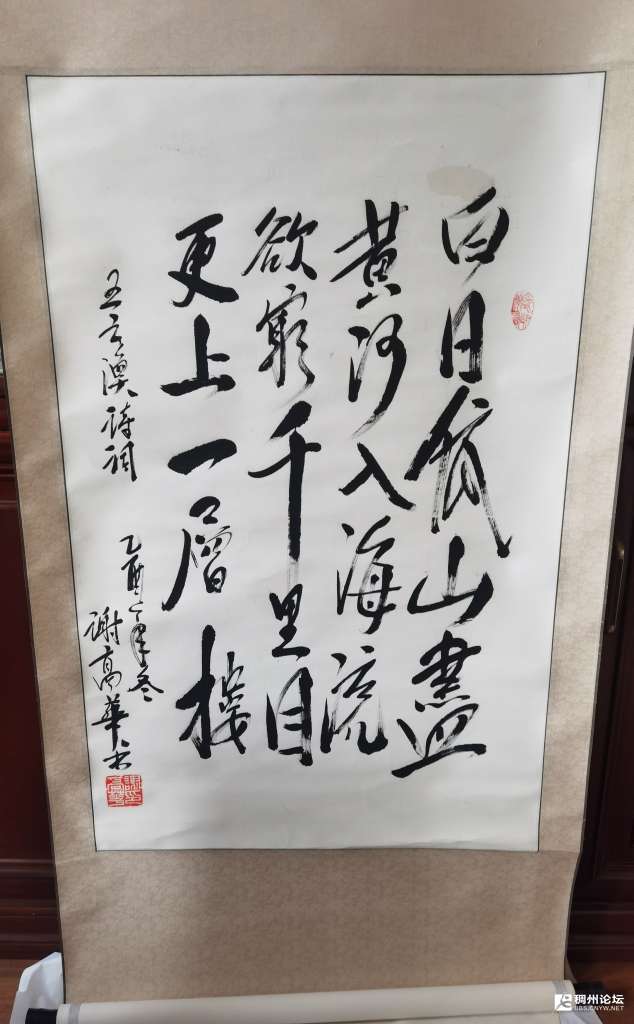 白日依山盡
黄河入海流
欲窮千里目
更上一層樓
王之渙詩詞
乙酉年冬
谢高華书
稠州论坛
BBS.CNYW.NET